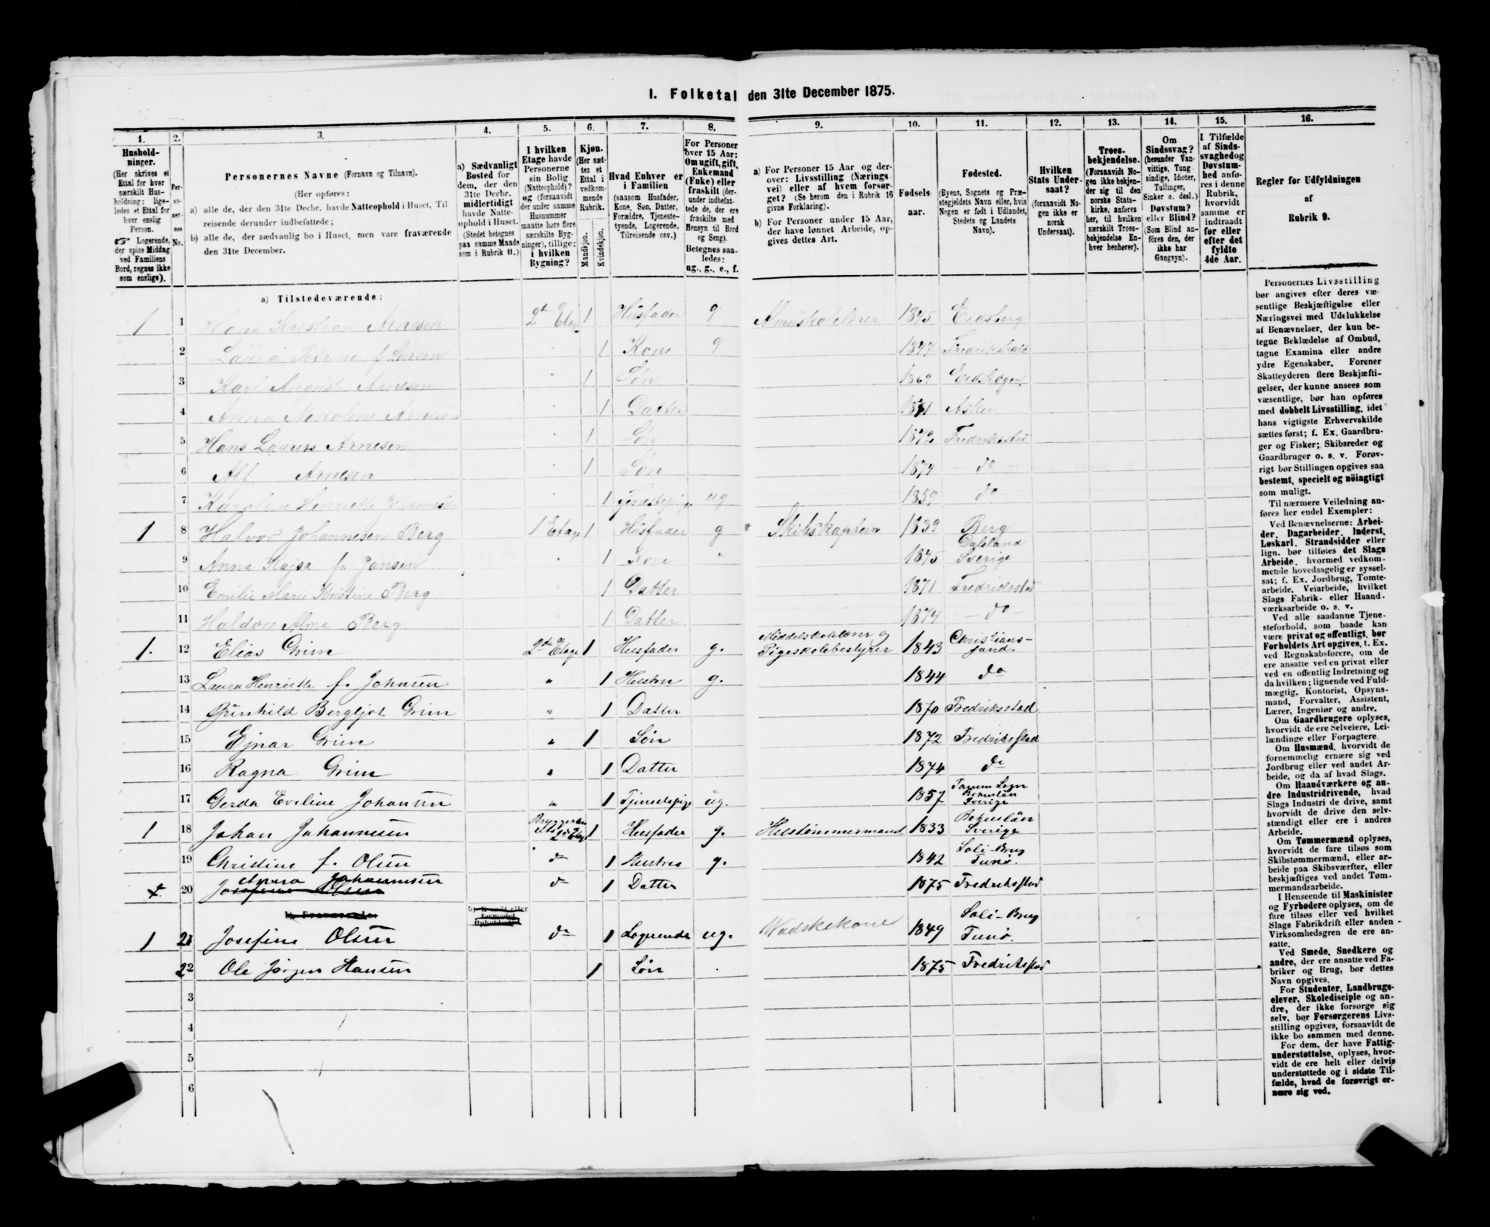 I. Folketal den 31te December 1875.
1.
Hushold-
ninger.
(Her skrives et
Ettal for hver
særskilt Hus-
holdning; lige-
ledes et Ettal for
hver enslig
Person.
Logerende,
der spise Middag
ved Familiens
Bord, regnes ikke
som enslige).
2.
Per-
so-
ner-
nes
No.
3.
Personernes Navne (Fornavn og Tilnavn).
(Her opføres:
a) alle de, der den 31te Decbr. havde Natteophold i Huset, Til-
reisende derunder indbefattede;
b) alle de, der sædvanlig bo i Huset, men vare fraværende
den 31te December.
4.
a) Sædvanligt
Bosted for
dem, der den
31te Decbr.
midlertidigt
havde Natte-
ophold i Huset.
(Stedet betegnes
paa samme Maade
som i Rubrik 11.)
5.
I hvilken
Etage havde
Personerne
sin Bolig
(Natteophold)?
og (forsaavidt
der under samme
Husnummer
maatte høre flere
særskilte Byg-
ninger), tillige:
i hvilken
Bygning?
6.
Kjøn.
(Her sæt-
tes et
Ettal i
vedkom-
mende
Rubrik.
Mandkjøn.
Kvindekjøn.
7.
Hvad Enhver er
i Familien
(saasom Husfader,
Kone, Søn, Datter,
Forældre, Tjeneste-
tyende, Logerende,
Tilreisende osv.)
8.
For Personer
over 15 Aar:
Om ugift, gift,
Enkemand
(Enke) eller
fraskilt (der-
under indbefat-
tede de, der ere
fraskilte med
Hensyn til Bord
og Seng).
Betegnes saa-
ledes:
ug., g., e., f.
9.
a) For Personer 15 Aar og der-
over: Livsstilling (Nærings-
vei) eller af hvem forsør-
get? (Se herom den i Rubrik 16
givne Forklaring).
b) For Personer under 15 Aar,
der have lønnet Arbeide, op-
gives dettes Art.
10.
Fødsels-
aar.
11.
Fødested.
(Byens, Sognets og Præ-
stegjeldets Navn eller, hvis
Nogen er født i Udlandet,
Stedets og Landets
Navn).
12.
Hvilken
Stats Under-
saat?
(forsaavidt No-
gen ikke er
norsk
Undersaat).
13.
Troes-
bekjendelse.
(Forsaavidt No-
gen ikke bekjen-
der sig til den
norske Stats-
kirke, anføres
her, til hvilken
særskilt Troes-
bekjendelse En-
hver henhører).
14.
Om
Sindssvag?
(herunder Van-
vittige, Tung-
sindige, Idioter,
Tullinger,
Sinker o. desl.)
Døvstum?
eller Blind?
(Som Blind an-
føres den, der
ikke har
Gangsyn).
15.
I Tilfælde
af Sinds-
svaghed og
Døvstum-
hed anfø-
res i denne
Rubrik,
hvorvidt
samme er
indtraadt
før eller
efter det
fyldte
4de Aar.
16.
Regler for Udfyldningen
af
Rubrik 9.
a) Tilstedeværende:
1 1 Hans Kristian Arnesen 2den Etage 1 Husfader g Almueskolelærer 1845 Eidsberg
2 Laura f. Larsen 1 Kone g 1847 Fredrikshald
3 Karl August Arnesen 1 Søn 1869
4 Anna Arnesen 1 Datter 1871 Asker
5 Hans Laurits Arnesen 1 Søn 1872 Fredriksstad
6 Alf Arnesen 1 Søn 1874 do
7 Karoline Henriette 1 ug 1859 do
1 8 Halvor Johannesen Berg 1 Etage 1 Husfader g Skibskaptein 1839 Berg
9 Anna Kajsa f. Jansen 1 Kone " 1845 Dalsland Sverige
10 Emilie Marie Kristine Berg 1 Datter 1871 Fredriksstad
11 Haldon Alma Berg 1 Datter 1874 do
1. 12 Elias Grim 2den Etage 1 Husfader g. Middelskolelærer og Pigeskolebestyrer 1843 Christians- sand.
13 Laura Henriette f. Johnsen " 1 Hustru g. 1844 do
14 Gunhild Bergljot Grim " 1 Datter 1870 Fredriksstad
15 Ejnar Grim " 1 Søn 1872 Fredriksstad
16 Ragna Grim " 1 Datter 1874 do
17 Gerda Eveline Johansen " 1 Tjenestepige ug. 1857 Tanum Sogn Bohuslän Sverige
1 18 Johan Johannesen 2den Etage 1 Husfader g. Hustømmermand 1833 Bohuslän Sverige
19 Christine f. Olsen do 1 Hustru g. 1842 Soli-Brug Tunø
20 Johannesen do 1 Datter 1875 Fredriksstad
b) Fraværende:
1 21 Josefine Olsen do 1 Logerende ug. Vadskekone 1849 Soli-Brug Tunø.
22 Ole Jørgen Hansen 1 Søn 1875 Fredriksstad
3
4
5
6
Personernes Livsstilling
bør angives efter deres væ-
sentlige Beskjæftigelse eller
Næringsvei med Udelukkelse
af Benævnelser, der kun be-
tegne Beklædelse af Ombud,
tagne Examina eller andre
ydre Egenskaber. Forener
Skatteyderen flere Beskjæfti-
gelser, der kunne ansees som
væsentlige, bør han opføres
med dobbelt Livsstilling, idet
hans vigtigste Erhvervskilde
sættes først; f. Ex. Gaardbru-
ger og Fisker; Skibsreder og
Gaardbruger o. s. v. Forøv-
rigt bør Stillingen opgives saa
bestemt, specielt og nöiagtigt
som muligt.
Til nærmere Veiledning an-
føres her endel Exempler:
Ved Benævnelserne: Arbei-
der, Dagarbeider, Inderst,
Løskarl, Strandsidder eller
lign. bør tilføies det Slags
Arbeide, hvormed vedkom-
mende hovedsagelig er syssel-
sat; f. Ex. Jordbrug, Tomte-
arbeide, Veiarbeide, hvilket
Slags Fabrik- eller Haand-
værksarbeide o. s. v.
Ved alle saadanne Tjene-
steforhold, som baade kan
være privat og offentligt, bør
Forholdets Art opgives, t. Ex.
ved Regnskabsførere, om de
ere ansatte ved en privat eller
ved en offentlig Indretning og
da hvilken; lignende ved Fuld-
mægtig, Kontorist, Opsyns-
mand, Forvalter, Assistent,
Lærer, Ingeniør og andre.
Om Gaardbrugere oplyses,
hvorvidt de ere Selveiere, Lei-
lændinge eller Forpagtere.
Om Husmænd, hvorvidt de
fornemmelig ernære sig ved
Jordbrug eller ved andet Ar-
beide, og da af hvad Slags.
Om Haandværkere og an-
dre Industridrivende, hvad
Slags Industri de drive, samt
hvorvidt de drive den selv-
stændigt eller ere i andres
Arbeide.
Om Tømmermænd oplyses,
hvorvidt de fare tilsøs som
Skibstømmermænd, eller ar-
beide paa Skibsværfter, eller
beskjæftiges ved andet Tøm-
mermandsarbeide.
I Henseende til Maskinister
og Fyrbødere oplyses, om de
fare tilsøs eller ved hvilket
Slags Fabrikdrift eller anden
Virksomhedsgren de ere an-
satte.
Ved Smede, Snedkere og
andre, der ere ansatte ved Fa-
briker og Brug, bør dettes
Navn opgives.
For Studenter, Landbrugs-
elever, Skoledisciple og an-
dre, der ikke forsørge sig
selv, bør Forsørgerens Livs-
stilling opgives, forsaavidt de
ikke bo sammen med denne.
For dem, der have Fattig-
understøttelse, oplyses, hvor-
vidt de ere helt eller delvis
understøttede og i sidste Til-
fælde, hvad de forøvrigt er-
nære sig ved.